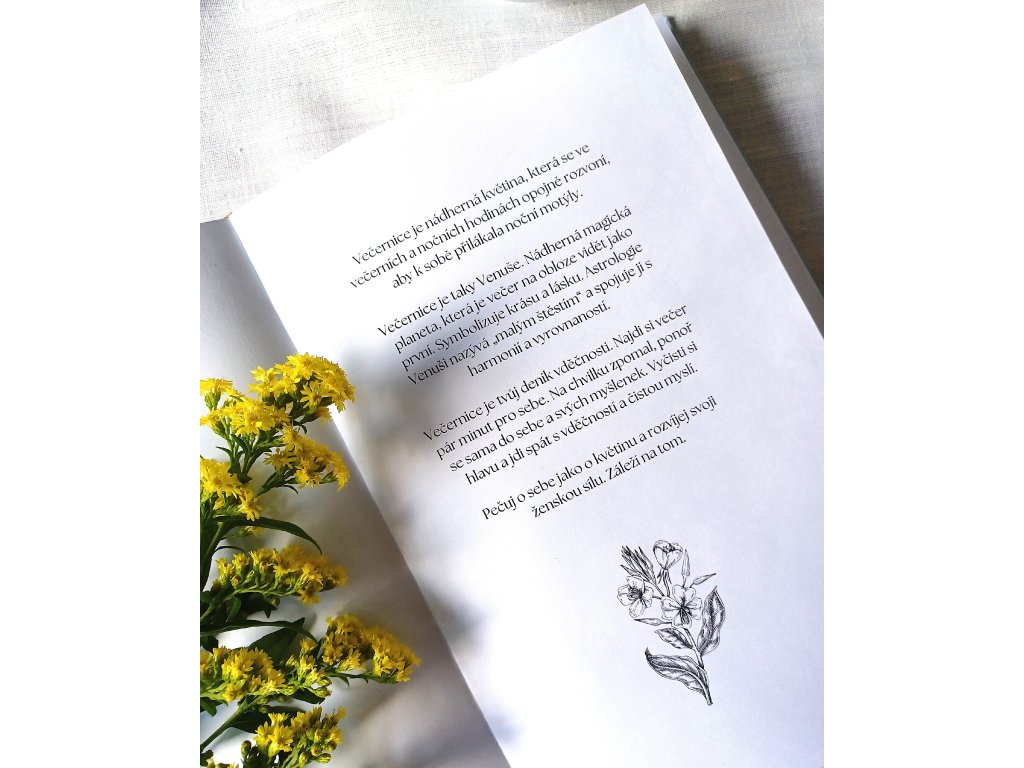 Večernice je nádherná květina, která se ve
večerních a nočních hodinách opojně rozvoní,
aby k sobě přilákala noční motýly.
Večernice je taky Venuše. Nádherná magická
planeta, která je večer na obloze vidět jako
první. Symbolizuje krásu a lásku. Astrologie
Venuši nazývá „malým štěstím“ a spojuje ji s
harmonií a vyrovnaností.
Večernice je tvůj deník vděčnosti. Najdi si večer
pár minut pro sebe. Na chvilku zpomal, ponoř
se sama do sebe a svých myšlenek. Vyčisti si
hlavu a jdi spát s vděčností a čistou myslí.
Pečuj o sebe jako o květinu a rozvíjej svoji
ženskou sílu. Záleží na tom.